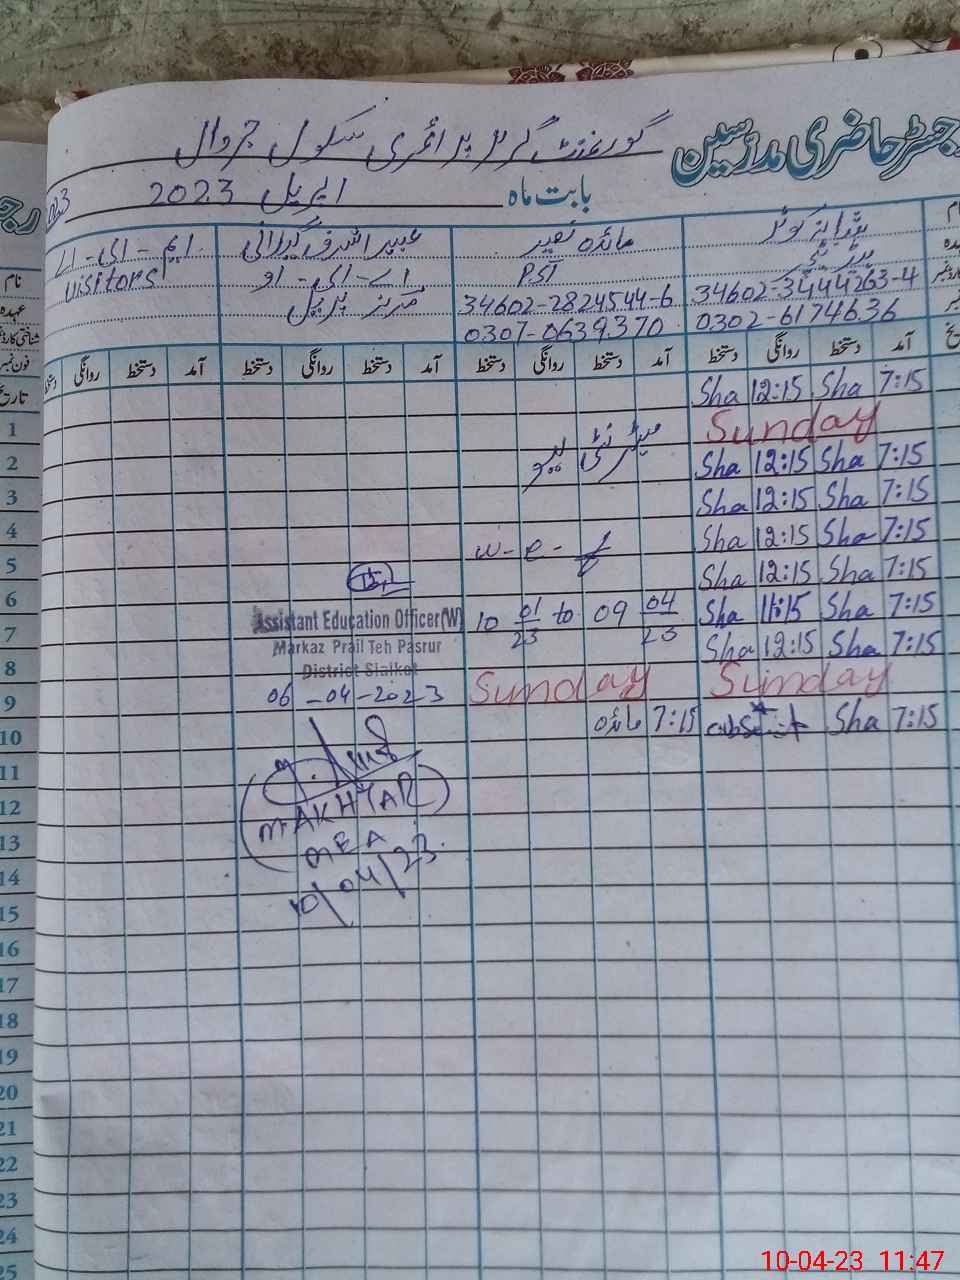 رجسٹر حاضری مدرسین
گورنمنٹ گرلز پرائمری سکول
بابت ماہ اپریل 2023
مائدہ نصیر عبیر اشرف گیلانی ایم-ای-اے
PST اے-ای-او Visitors
34602-3444263-4 34602-2824544-6 مرکز پریل
0302-6174636 0307-0639370
آمد دستخط روانگی دستخط آمد دستخط روانگی دستخط آمد دستخط روانگی دستخط آمد دستخط روانگی
7:15 Sha 12:15 Sha
Sunday
7:15 Sha 12:15 Sha
میٹرنٹی لیو
7:15 Sha 12:15 Sha
7:15 Sha 12:15 Sha
w-e-f
7:15 Sha 12:15 Sha
7:15 Sha 11:15 Sha
10 01/23 to 09 04/23
7:15 Sha 12:15 Sha
Sunday Sunday
7:15 Sha absent
7:15 مائدہ
Assistant Education Officer(W)
Markaz Prail Teh Pasrur
District Sialkot
06-04-2023
MAKHTAR
MEA
10/04/23
نام
عہدہ
شناختی کارڈ نمبر
فون نمبر
تاریخ
1
2
3
4
5
6
7
8
9
10
11
12
13
14
15
16
17
18
19
20
21
22
23
24
25
10-04-23 11:47